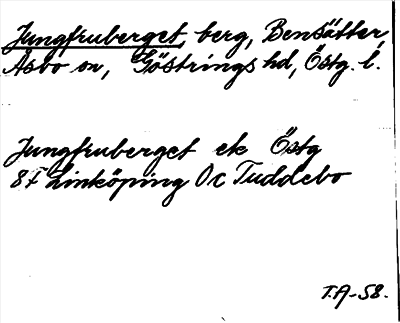 Jungfruberget, berg, Bensätter,
Åsbo sn, Göstrings hd, Östg. l.
Jungfruberget ek Östg
8F Linköping 0c Tuddebo
T.A-58.